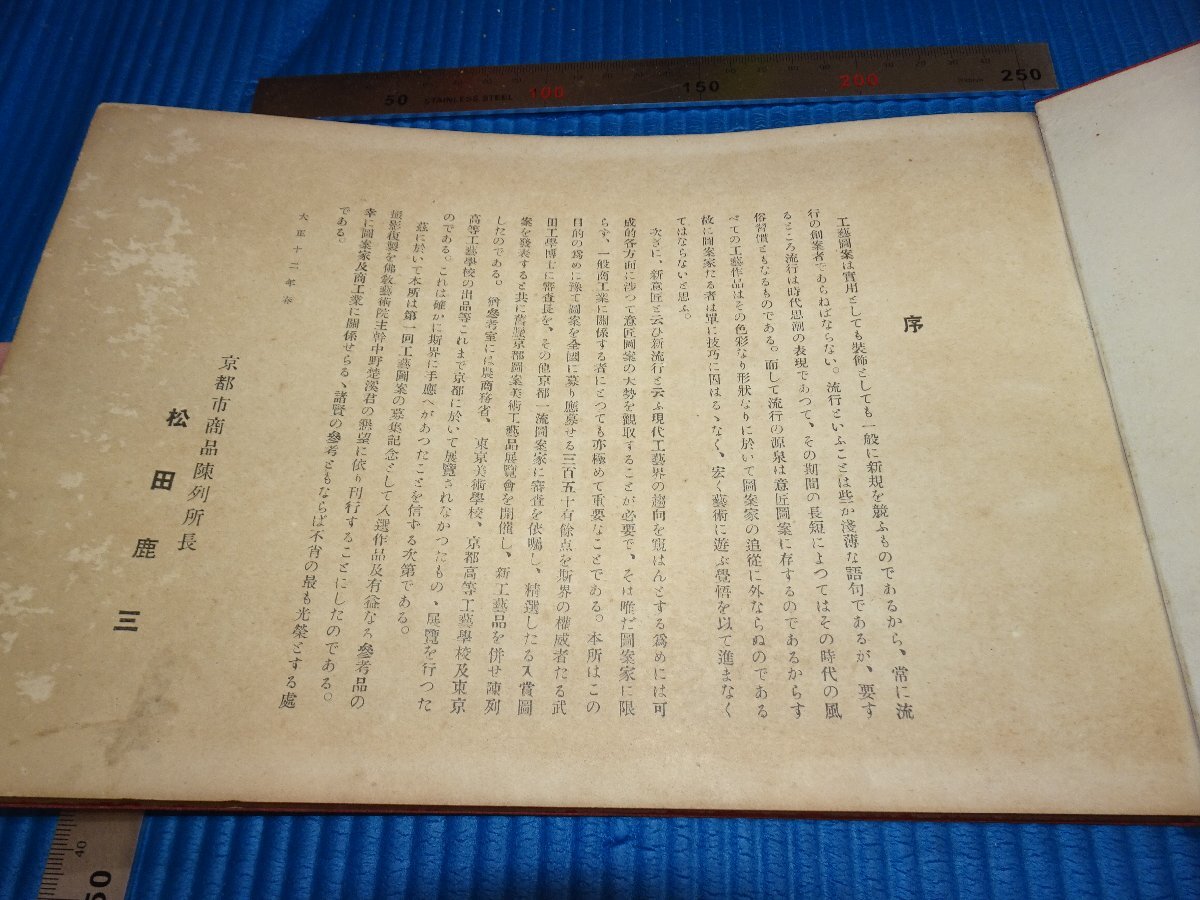 序
工藝圖案は實用としても裝飾としても一般に新規を競ふものであるから、常に流
行の創案者であらねばならない。流行といふことは些か淺薄な語句であるが、要す
るところ流行は時代思潮の表現であつて、その期間の長短によつてはその時代の風
俗習慣ともなるものである。而して流行の源泉は意匠圖案に存するのであるからす
べての工藝作品はその色彩なり形狀なりに於いて圖案家の追從に外ならぬのである
故に圖案家たる者は單に技巧に囚はるゝなく、宏く藝術に遊ぶ覺悟を以て進まなく
てはならないと思ふ。
次ぎに、新意匠と云ひ新流行と云ふ現代工藝界の趨向を窺はんとする爲めには可
成的各方面に涉つて意匠圖案の大勢を觀取することが必要で、そは唯だ圖案家に限
らず、一般商工業に關係する者にとつても亦極めて重要なことである。本所はこの
目的の爲めに豫て圖案を全國に募り應募せる三百五十有餘点を斯界の權威者たる武
田工學博士に審査長を、その他京都一流圖案家に審査を依囑し、精選したる入賞圖
案を發表すると共に舊臘京都圖案美術工藝品展覽會を開催し、新工藝品を併せ陳列
したのである。猶參考室には農商務省、東京美術學校、京都高等工藝學校及東京
高等工藝學校の出品等これまで京都に於いて展覽されなかつたもの、展覽を行つた
のである。これは確かに斯界に手應へがあつたことを信する次第である。
茲に於いて本所は第一回工藝圖案の募集記念として入選作品及有益なる參考品の
撮影復製を佛敎藝術院主幹中野楚溪君の懇望に依り刊行することにしたのである。
幸に圖案家及商工業に關係せらるゝ諸賢の參考ともならば不肖の最も光榮とする處
である。
大正十二年春
京都市商品陳列所長
松田鹿三
50 STAINLESS STEEL 100 150 200 250
40
50